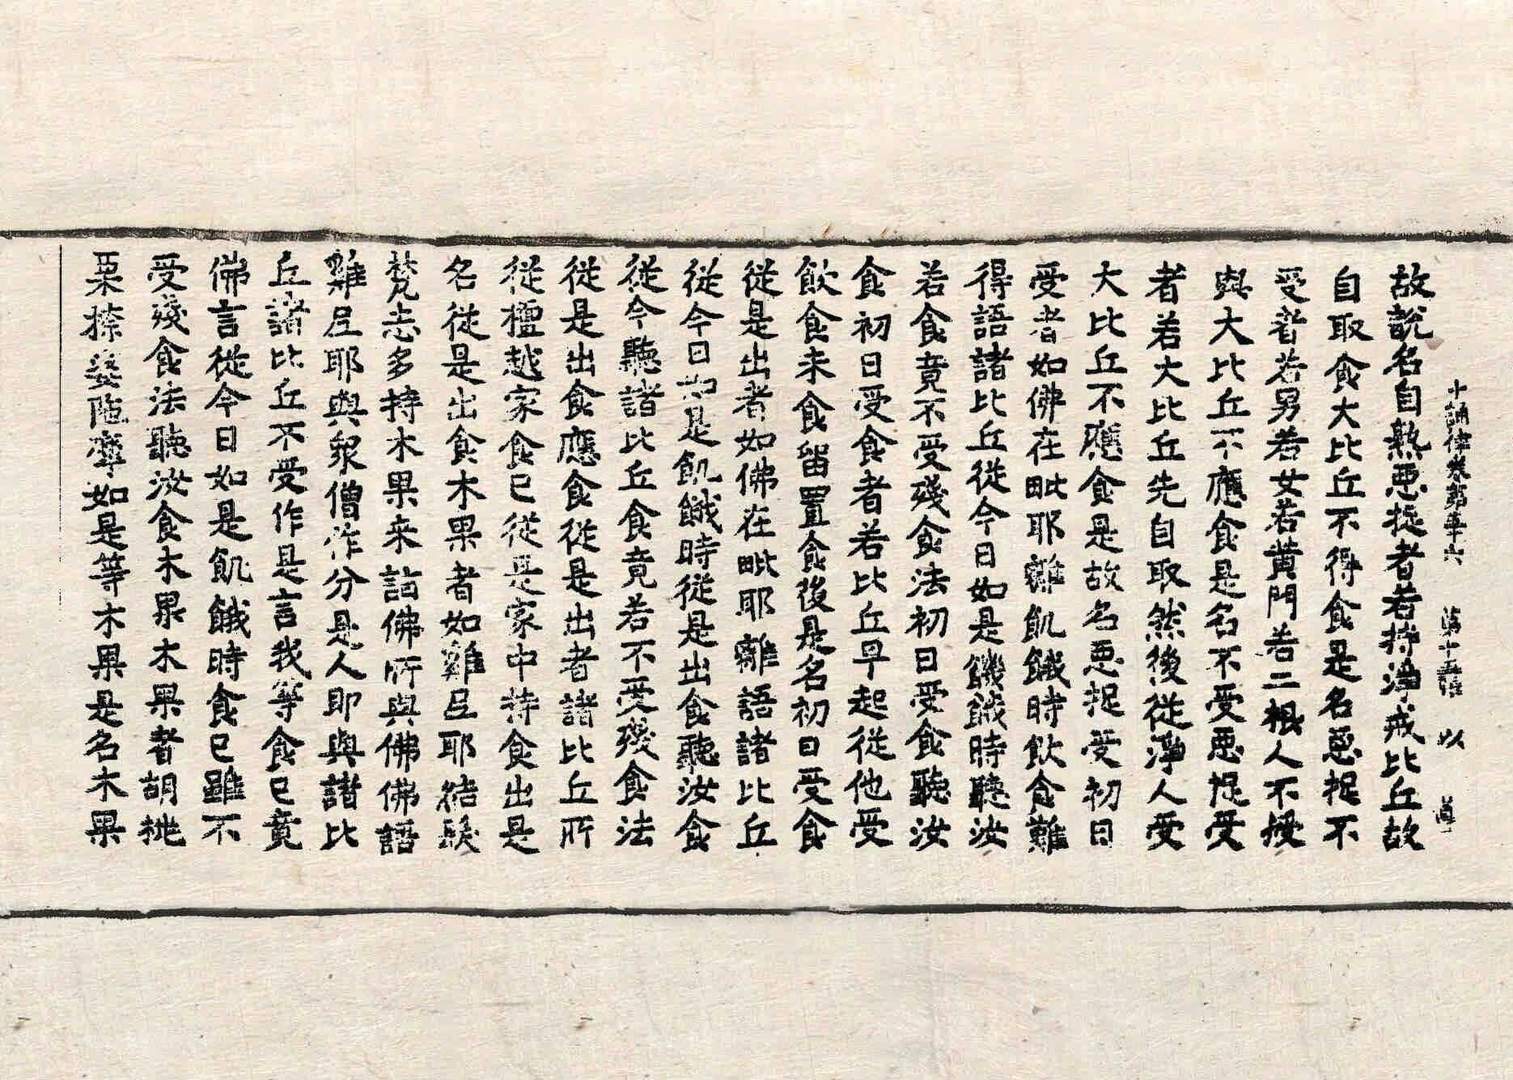 十誦律卷第五十六 第十五張 以
故說名自熟惡捉者若持淨戒比丘故
自取食大比丘不得食是名惡捉不
受者若男若女若黃門若二根人不授
與大比丘不應食是名不受惡捉受
者若大比丘先自取然後從淨人受
大比丘不應食是故名惡捉受初日
受者如佛在毗耶離飢餓時飲食難
得語諸比丘從今日如是飢餓時聽汝
若食竟不受殘食法初日受食聽汝
食初日受食者若比丘早起從他受
飲食未食留置食後是名初日受食
從是出者如佛在毗耶離語諸比丘
從今日如是飢餓時從是出食聽汝食
從今聽諸比丘食竟若不受殘食法
從是出食應食從是出者諸比丘所
從檀越家食已從是家中持食出是
名從是出食木果者如難㠯耶結髮
梵志多持木果来詣佛所與佛佛語
難㠯耶與眾僧作分是人即與諸比
丘諸比丘不受作是言我等食已竟
佛言從今日如是飢餓時食已雖不
受殘食法聽汝食木果木果者胡桃
栗㮈婆陁廮如是等木果是名木果